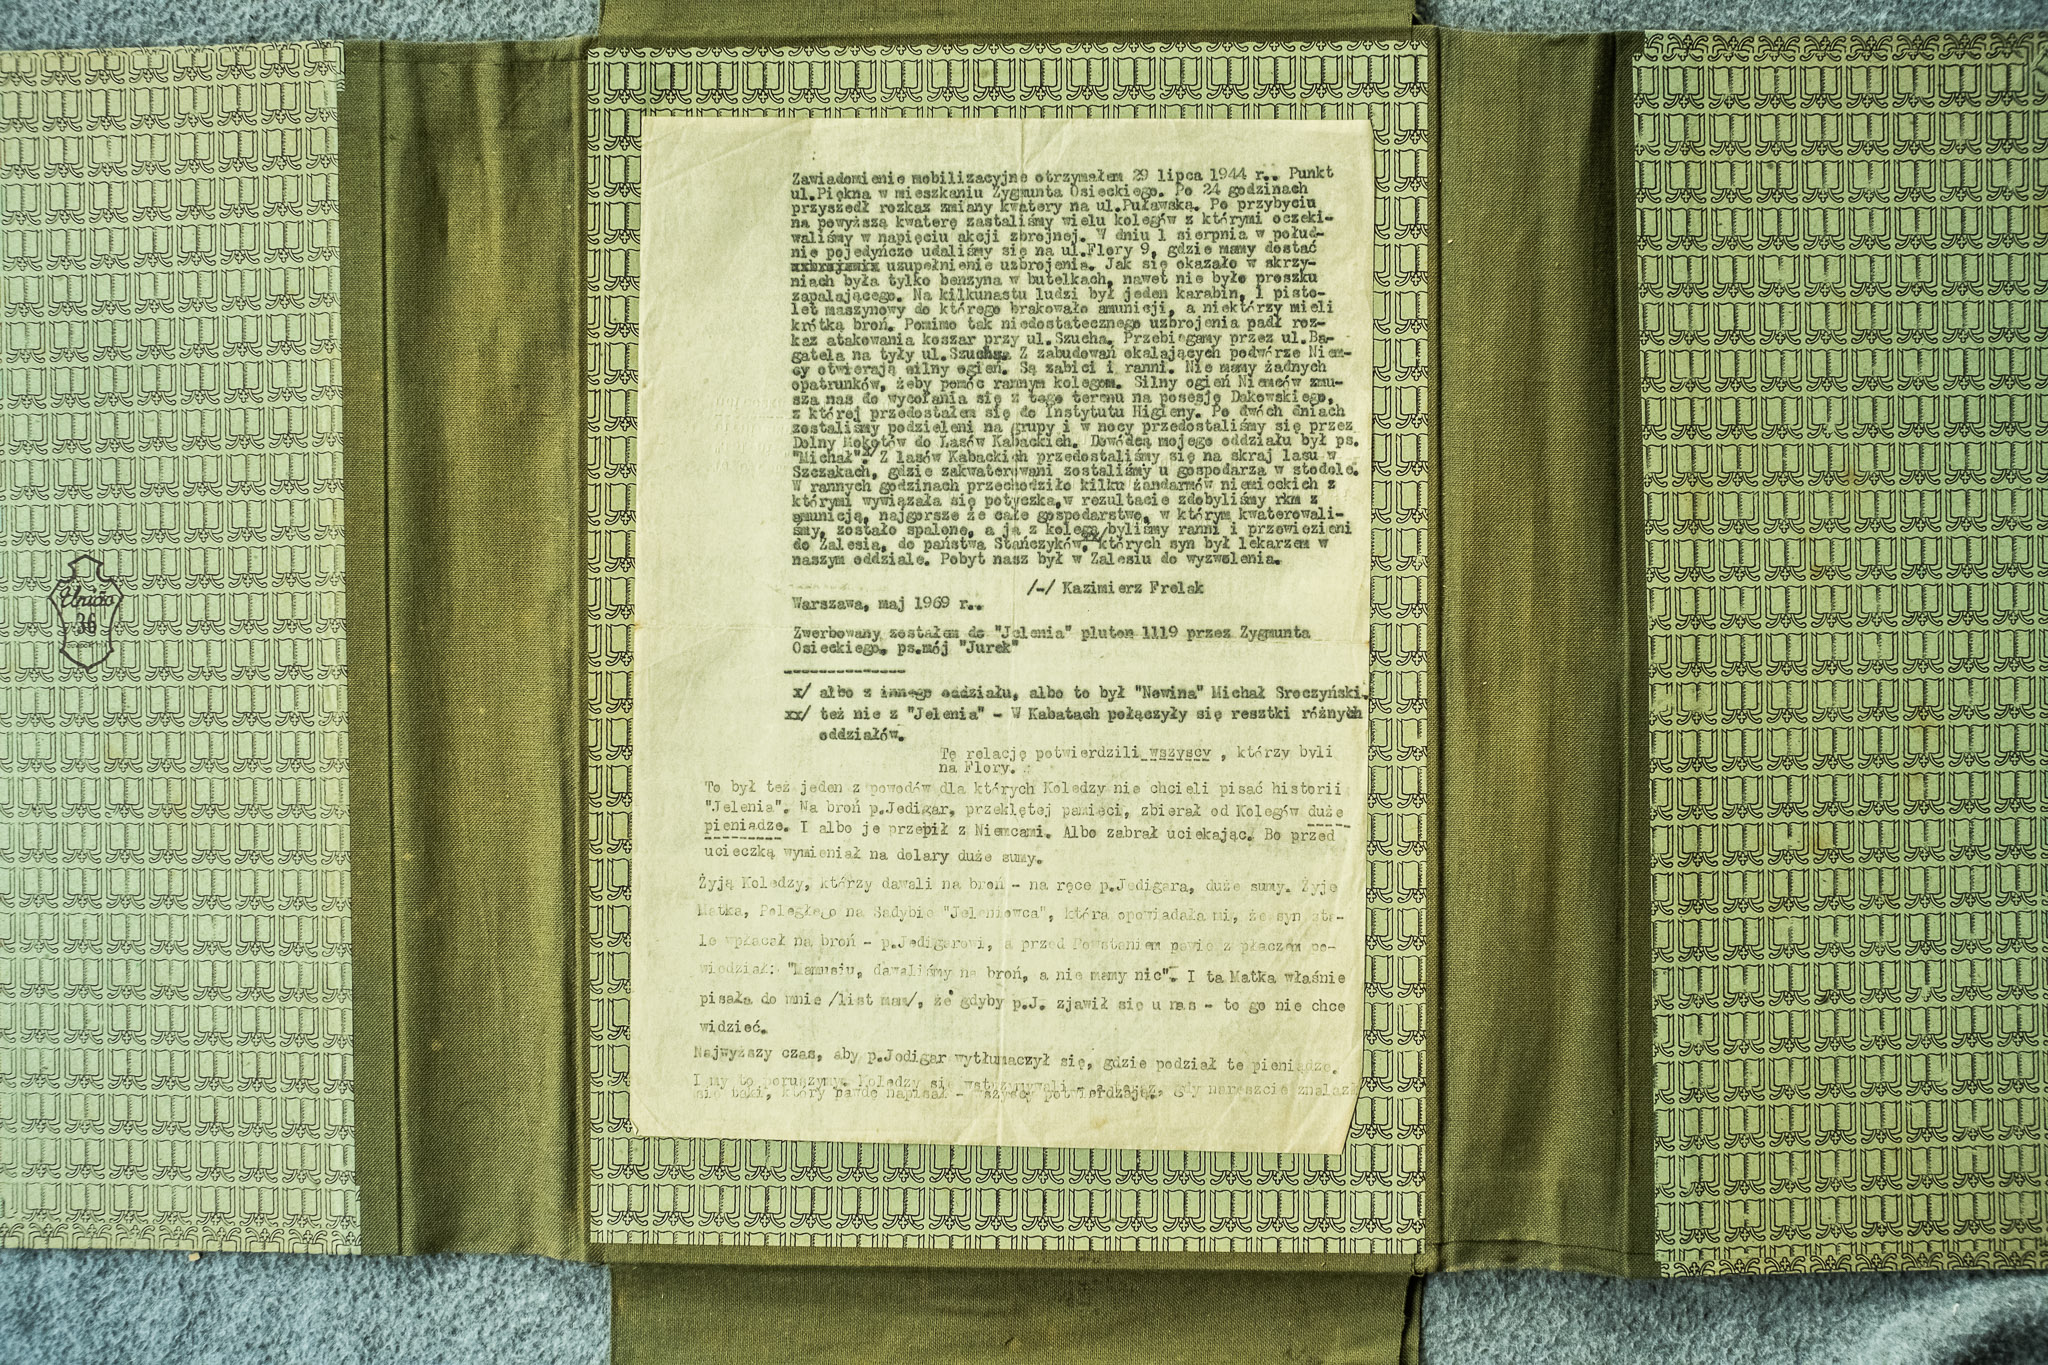 Zawiadomienie mobilizacyjne otrzymałem 29 lipca 1944 r.. Punkt
ul.Piękna w mieszkaniu Zygmunta Osieckiego. Po 24 godzinach
przyszedł rozkaz zmiany kwatery na ul.Puławską. Po przybyciu
na powyższą kwaterę zastaliśmy wielu kolegów z którymi oczeki-
waliśmy w napięciu akcji zbrojnej. W dniu 1 sierpnia w połud-
nie pojedyńczo udaliśmy się na ul.Flory 9, gdzie mamy dostać
uzupełnienie uzbrojenia. Jak się okazało w skrzy-
niach była tylko benzyna w butelkach, nawet nie było proszku
zapalającego. Na kilkunastu ludzi był jeden karabin, 1 pisto-
let maszynowy do którego brakowało amunicji, a niektórzy mieli
krótką broń. Pomimo tak niedostatecznego uzbrojenia padł roz-
kaz atakowania koszar przy ul.Szucha. Przebiegamy przez ul.Ba-
gatela na tyły ul.Szucha. Z zabudowań okalających podwórze Niem-
cy otwierają silny ogień. Są zabici i ranni. Nie mamy żadnych
opatrunków, żeby pomóc rannym kolegom. Silny ogień Niemców zmu-
sza nas do wycofania się z tego terenu na posesję Dakowskiego,
z której przedostałem się do Instytutu Higieny. Po dwóch dniach
zostaliśmy podzieleni na grupy i w nocy przedostaliśmy się przez
Dolny Mokotów do Lasów Kabackich. Dowódcą mojego oddziału był ps.
"Michał".x/ Z lasów Kabackich przedostaliśmy się na skraj lasu w
Szczakach, gdzie zakwaterowani zostaliśmy u gospodarza w stodole.
W rannych godzinach przechodziło kilku żandarmów niemieckich z
którymi wywiązała się potyczka,w rezultacie zdobyliśmy rkm z
amunicją, najgorsze że całe gospodarstwo, w którym kwaterowali-
śmy, zostało spalone, a ja z kolegą xx/ byliśmy ranni i przewiezieni
do Zalesia, do państwa Stańczyków, których syn był lekarzem w
naszym oddziale. Pobyt nasz był w Zalesiu do wyzwolenia.
/-/ Kazimierz Frelak
Warszawa, maj 1969 r..
Zwerbowany zostałem do "Jelenia" pluton 1119 przez Zygmunta
Osieckiego. ps.mój "Jurek"
---------------
x/ albo z innego oddziału, albo to był "Nowina" Michał Sroczyński.
xx/ też nie z "Jelenia" - W Kabatach połączyły się resztki różnych
oddziałów.
Tę relację potwierdzili wszyscy , którzy byli
na Flory.
To był też jeden z powodów dla których Koledzy nie chcieli pisać historii
"Jelenia". Na broń p.Jedigar, przeklętej pamięci, zbierał od Kolegów duże
pieniądze. I albo je przepił z Niemcami. Albo zabrał uciekając. Bo przed
ucieczką wymieniał na dolary duże sumy.
Żyją Koledzy, którzy dawali na broń - na ręce p.Jedigara, duże sumy. Żyje
Matka, Poległego na Sadybie "Jeleniowca", która opowiadała mi, że syn sta-
le wpłacał na broń - p.Jedigarowi, a przed Powstaniem prawie z płaczem po-
wiedział: "Mamusiu, dawaliśmy na broń, a nie mamy nic". I ta Matka właśnie
pisała do mnie /list mam/, że gdyby p.J. zjawił się u nas - to go nie chce
widzieć.
Najwyższy czas, aby p.Jedigar wytłumaczył się, gdzie podział te pieniądze.
I my to poruszymy. Koledzy się wstrzymywali - a teraz, gdy nareszcie znalazł
się taki, który pawdę napisał - wszyscy potwierdzają.
Unión
36